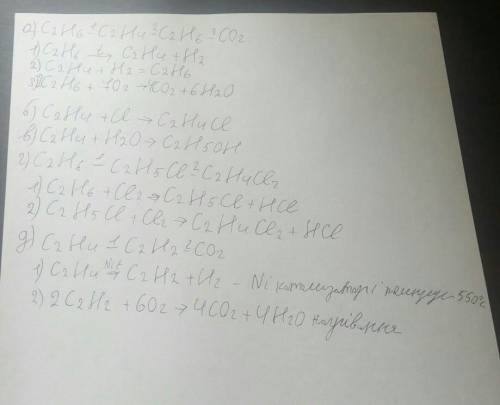 а) C2H6 -1 C2H4 -2 C2H6 -3 CO2
1) C2H6 t→ C2H4 + H2
2) C2H4 + H2 = C2H6
3) 2C2H6 + 7O2 → 4CO2 + 6H2O
б) C2H4 + Cl → C2H4Cl
в) C2H4 + H2O → C2H5OH
г) C2H6 -1 C2H5Cl -2 C2H4Cl2
1) C2H6 + Cl2 → C2H5Cl + HCl
2) C2H5Cl + Cl2 → C2H4Cl2 + HCl
д) C2H4 -1 C2H2 -2 CO2
1) C2H4 Ni t→ C2H2 + H2 – Ni каталізатор і 550°C
2) 2C2H2 + 6O2 → 4CO2 + 4H2O нагрівання